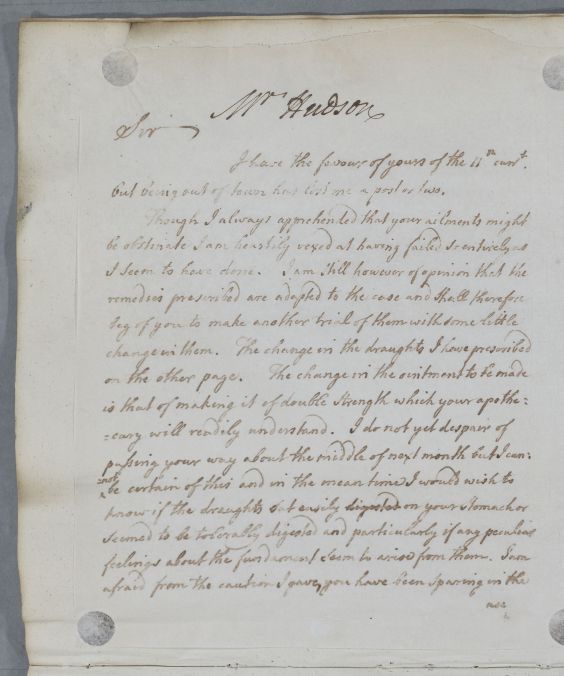 Mr Hudson
Sir
I have the favour of yours of the 11th curt.
but being out of town has lost me a post or two.
Though I always apprehended that your ailments might
be obstinate I am heartily vexed at having failed so entirely as
I seem to have done. I am still however of opinion that the
remedies prescribed are adapted to the case and shall therefore
beg of you to make another trial of them with some little
change in them. The change in the draughts I have prescribed
on the other page. The change in the ointment to be made
is that of making it of double strength which your apothe=
=cary will readily understand. I do not yet despair of
passing your way about the middle of next month but I can=
not
be certain of this and in the mean time I would wish to
know if the draughts sat easily digested on your stomach or
seemed to be tolerally digested and particularly if any peculiar
feelings about the fundament seem to arise from them. I am
afraid from the caution I gave, you have been sparing in the
use